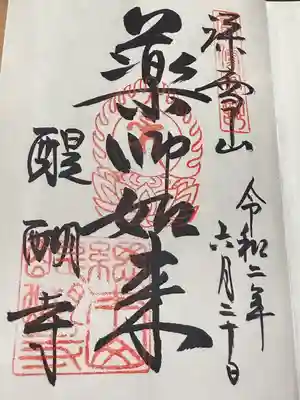 深雪山
薬師如来
醍醐寺
令和二年
六月二十日